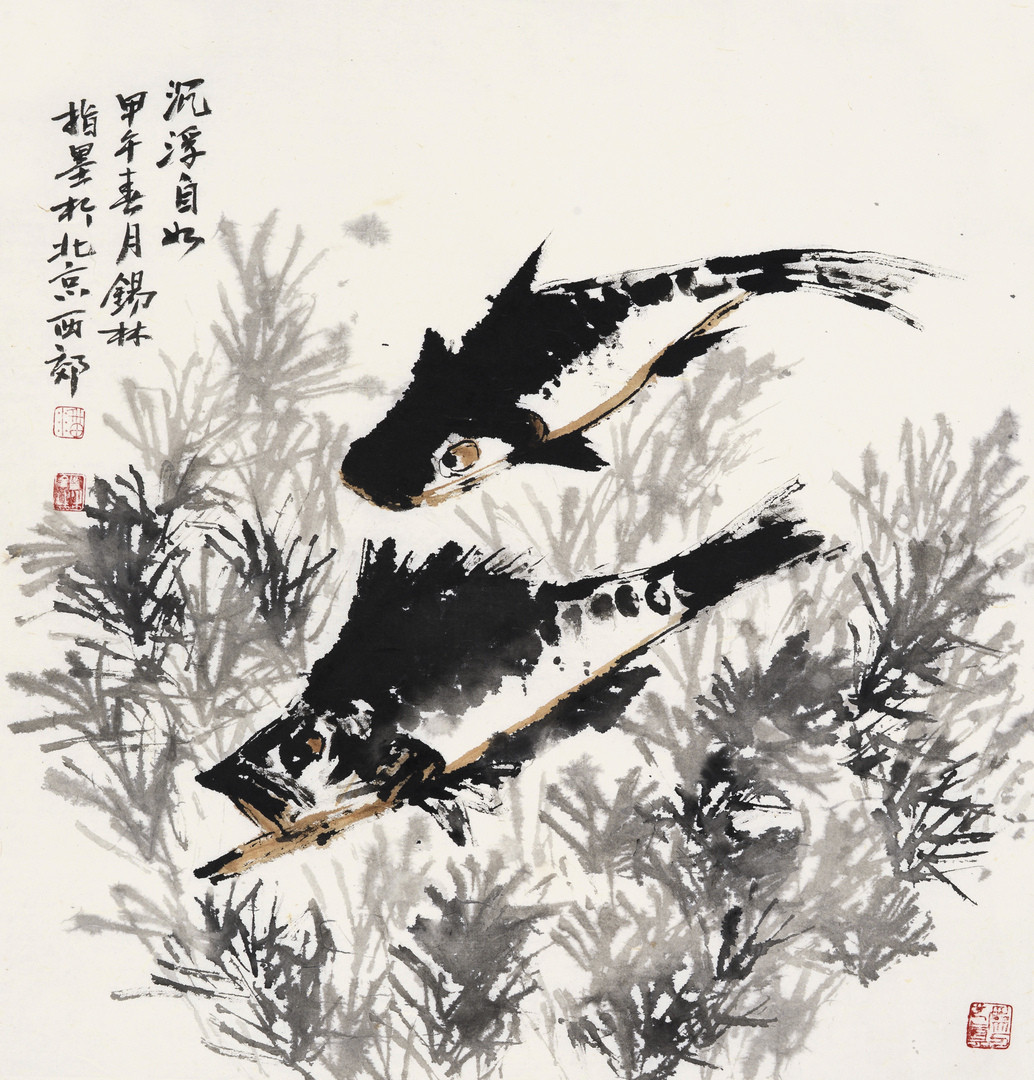 沉浮自如
甲午春月锡林
指墨於北京西郊